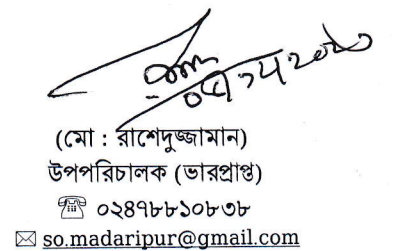 (মো : রাশেদুজ্জামান)
উপপরিচালক (ভারপ্রাপ্ত)
☎ ০২৪৭৮৮১০৮৩৮
✉ so.madaripur@gmail.com